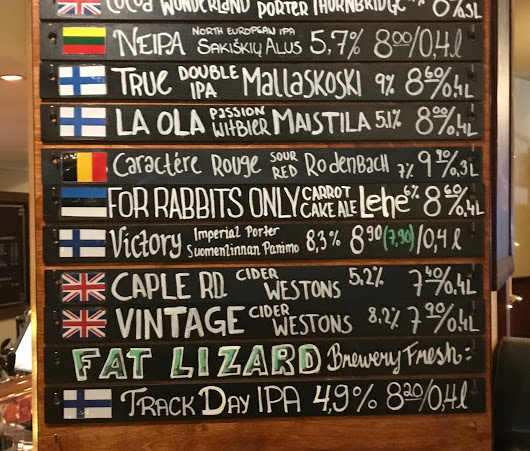 Cocoa Wonderland Porter Thornbridge
NEIPA North European IPA Sakiškių Alus 5,7% 8⁰⁰/0,4l
True Double IPA Mallaskoski 9% 8⁶⁰/0,4L
La Ola Passion Witbier Maistila 5.1% 8⁰⁰/0,4L
Caractére Rouge Sour Red Rodenbach 7% 9⁹⁰/0,3L
FOR RABBITS ONLY CARROT CAKE ALE Lehe 6% 8⁶⁰/0,4L
Victory Imperial Porter Suomenlinnan Panimo 8,3% 8⁹⁰(7,90)/0,4l
CAPLE RD. CIDER WESTONS 5,2% 7⁴⁰/0,4L
VINTAGE CIDER WESTONS 8,2% 7⁹⁰/0,4L
FAT LIZARD Brewery Fresh:
Track Day IPA 4,9% 8²⁰/0,4l